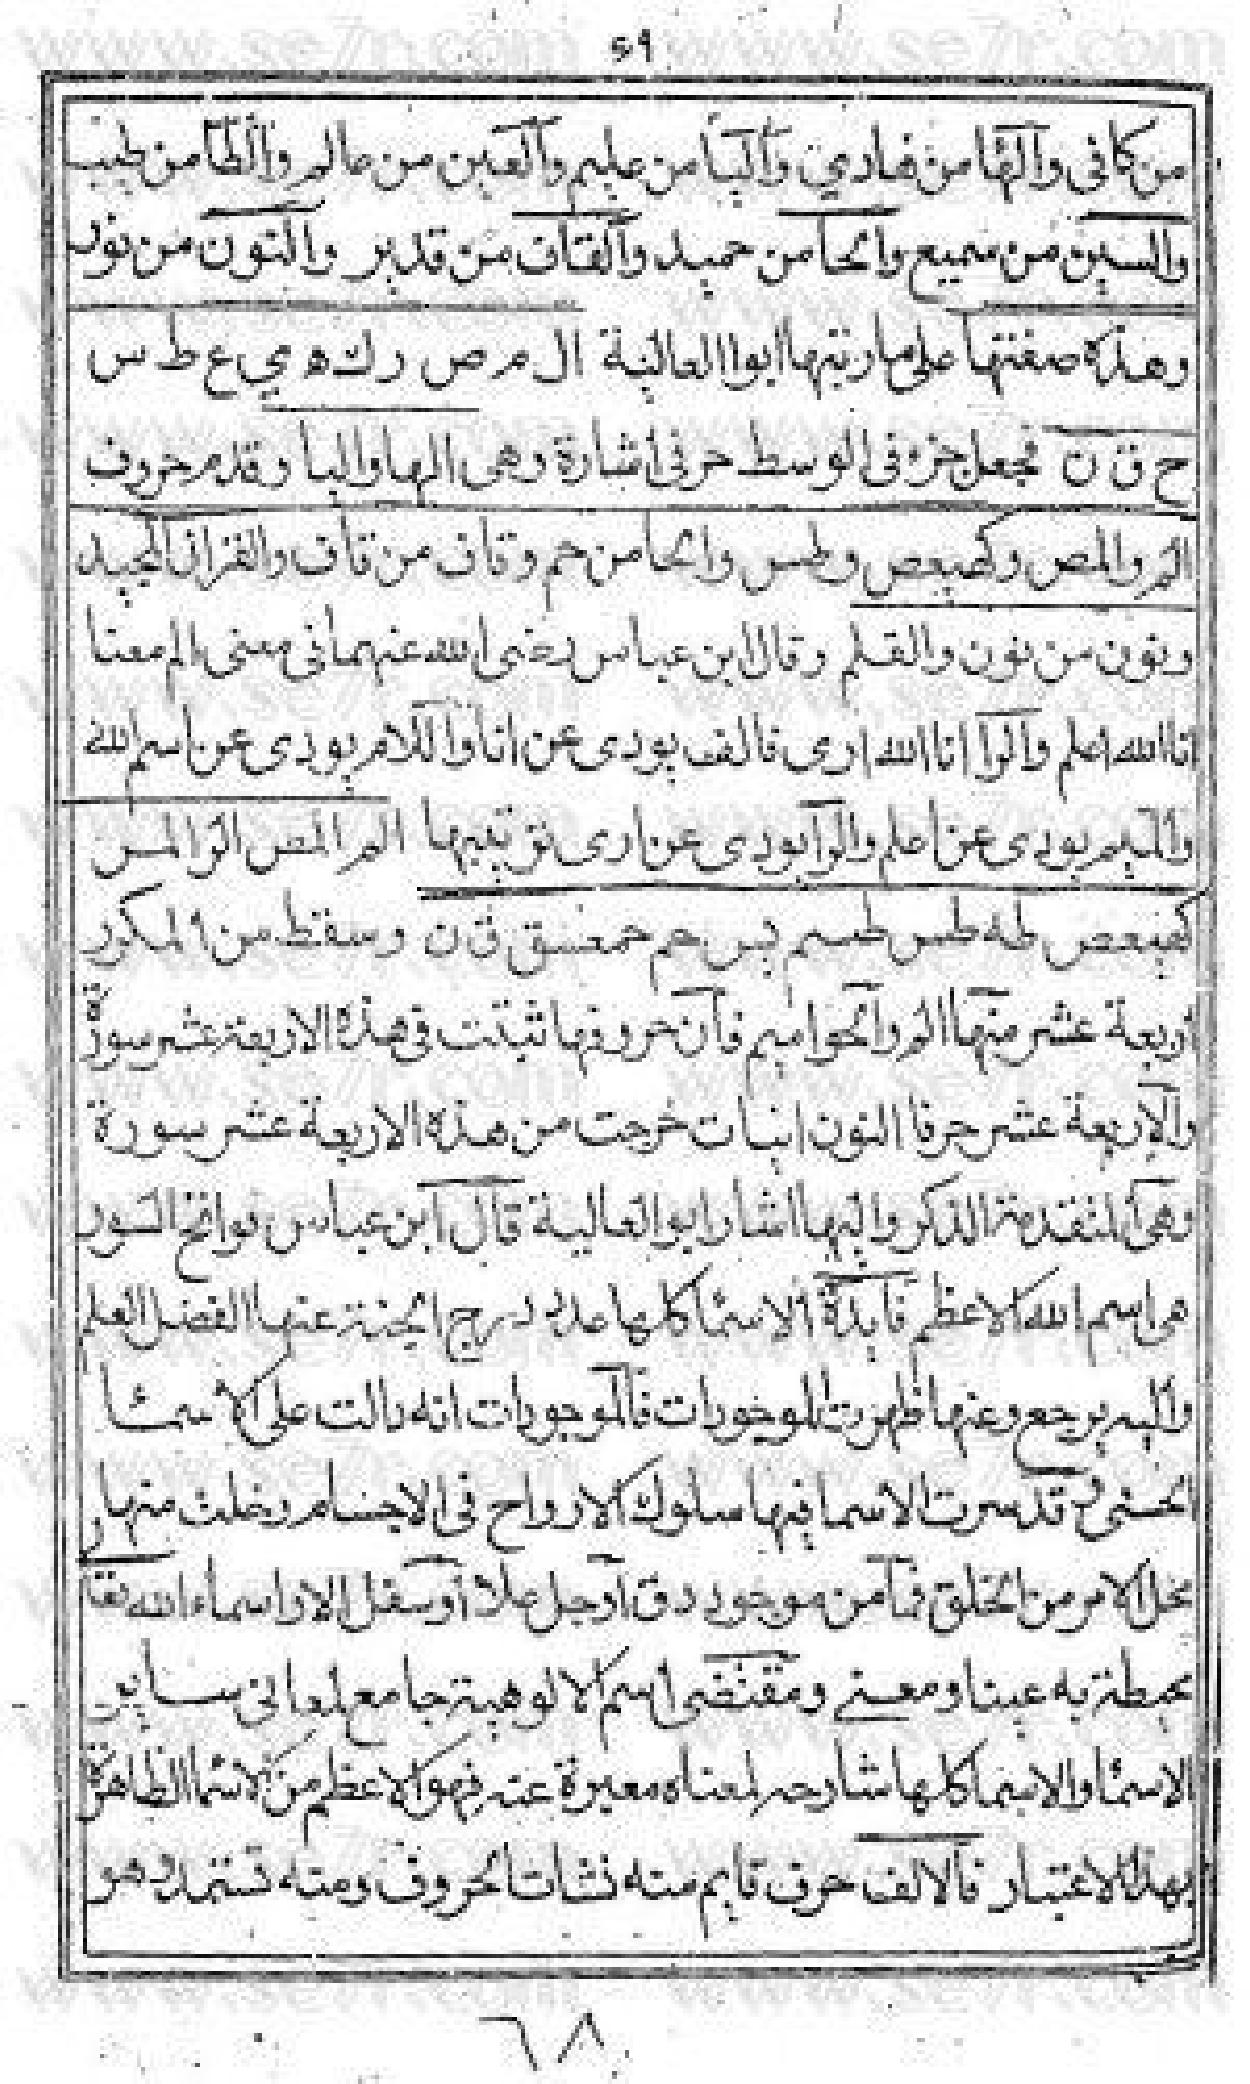 ٥٩
من كافي والها من هادي واليا من عليم والعين من عالم والطا من طيب
والسين من سميع والحا من حميد والقاف من قدير والنون من نور
وهذه صفتها على ما رتبها ابوا العالية ال م ص ر ك ه ي ع ط س
ح ق ن فجعل جزء في الوسط حرفي اشارة وهى الها واليا وقدم حروف
الر والمص وكهيعص وطس والحا من حم وقاف من قاف والقران المجيد
ونون من نون والقلم وقال ابن عباس رضى الله عنهما في معنى الم معنا
انا الله اعلم والرا انا الله ارى فالف يودى عن انا واللام يودى عن اسم الله
والميم يودى عن اعلم والرا يودى عن ارى ترتيبها الم المص الر المر
كهيعص طه طس طسم يس حم حمعسق ق ن وسقط من المكرر
اربعة عشر منها الر والحواميم فان حروفها ثبتت في هذه الاربعة عشر سورة
والاربعة عشر حرفا النون انيات خرجت من هذه الاربعة عشر سورة
وهى المتقدمة الذكر واليها اشار ابو العالية قال ابن عباس فواتح السور
هى اسم الله الاعظم فايدة الاسما كلها عدد درج الجنة عنها الفضل العلم
واليه يرجع وعنها ظهرت الموجودات فالموجودات انه دالت على الاسما
الحسنى قد سرت الاسما فيها سلوك الارواح في الاجسام وحلت منها
محل الامر من الخلق فما من موجود دق اوجل علا اوسفل الا واسماء الله تعا
محيطة به عينا ومعنى ومقتضى اسم الالوهية جامع لمعانى ساير
الاسما والاسما كلها شارحه لمعناه معبرة عنه فهو الاعظم من الاسما الظاهرة
بهذا الاعتبار فالالف حرف قايم منه نشات الحروف ومنه تستمد وهو
٦٨